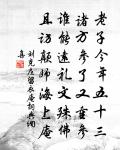 老子今年五十三
諸方參了又重參
誰能遠礼文殊佛
且訪顛師海上庵
劉克莊留衣庵